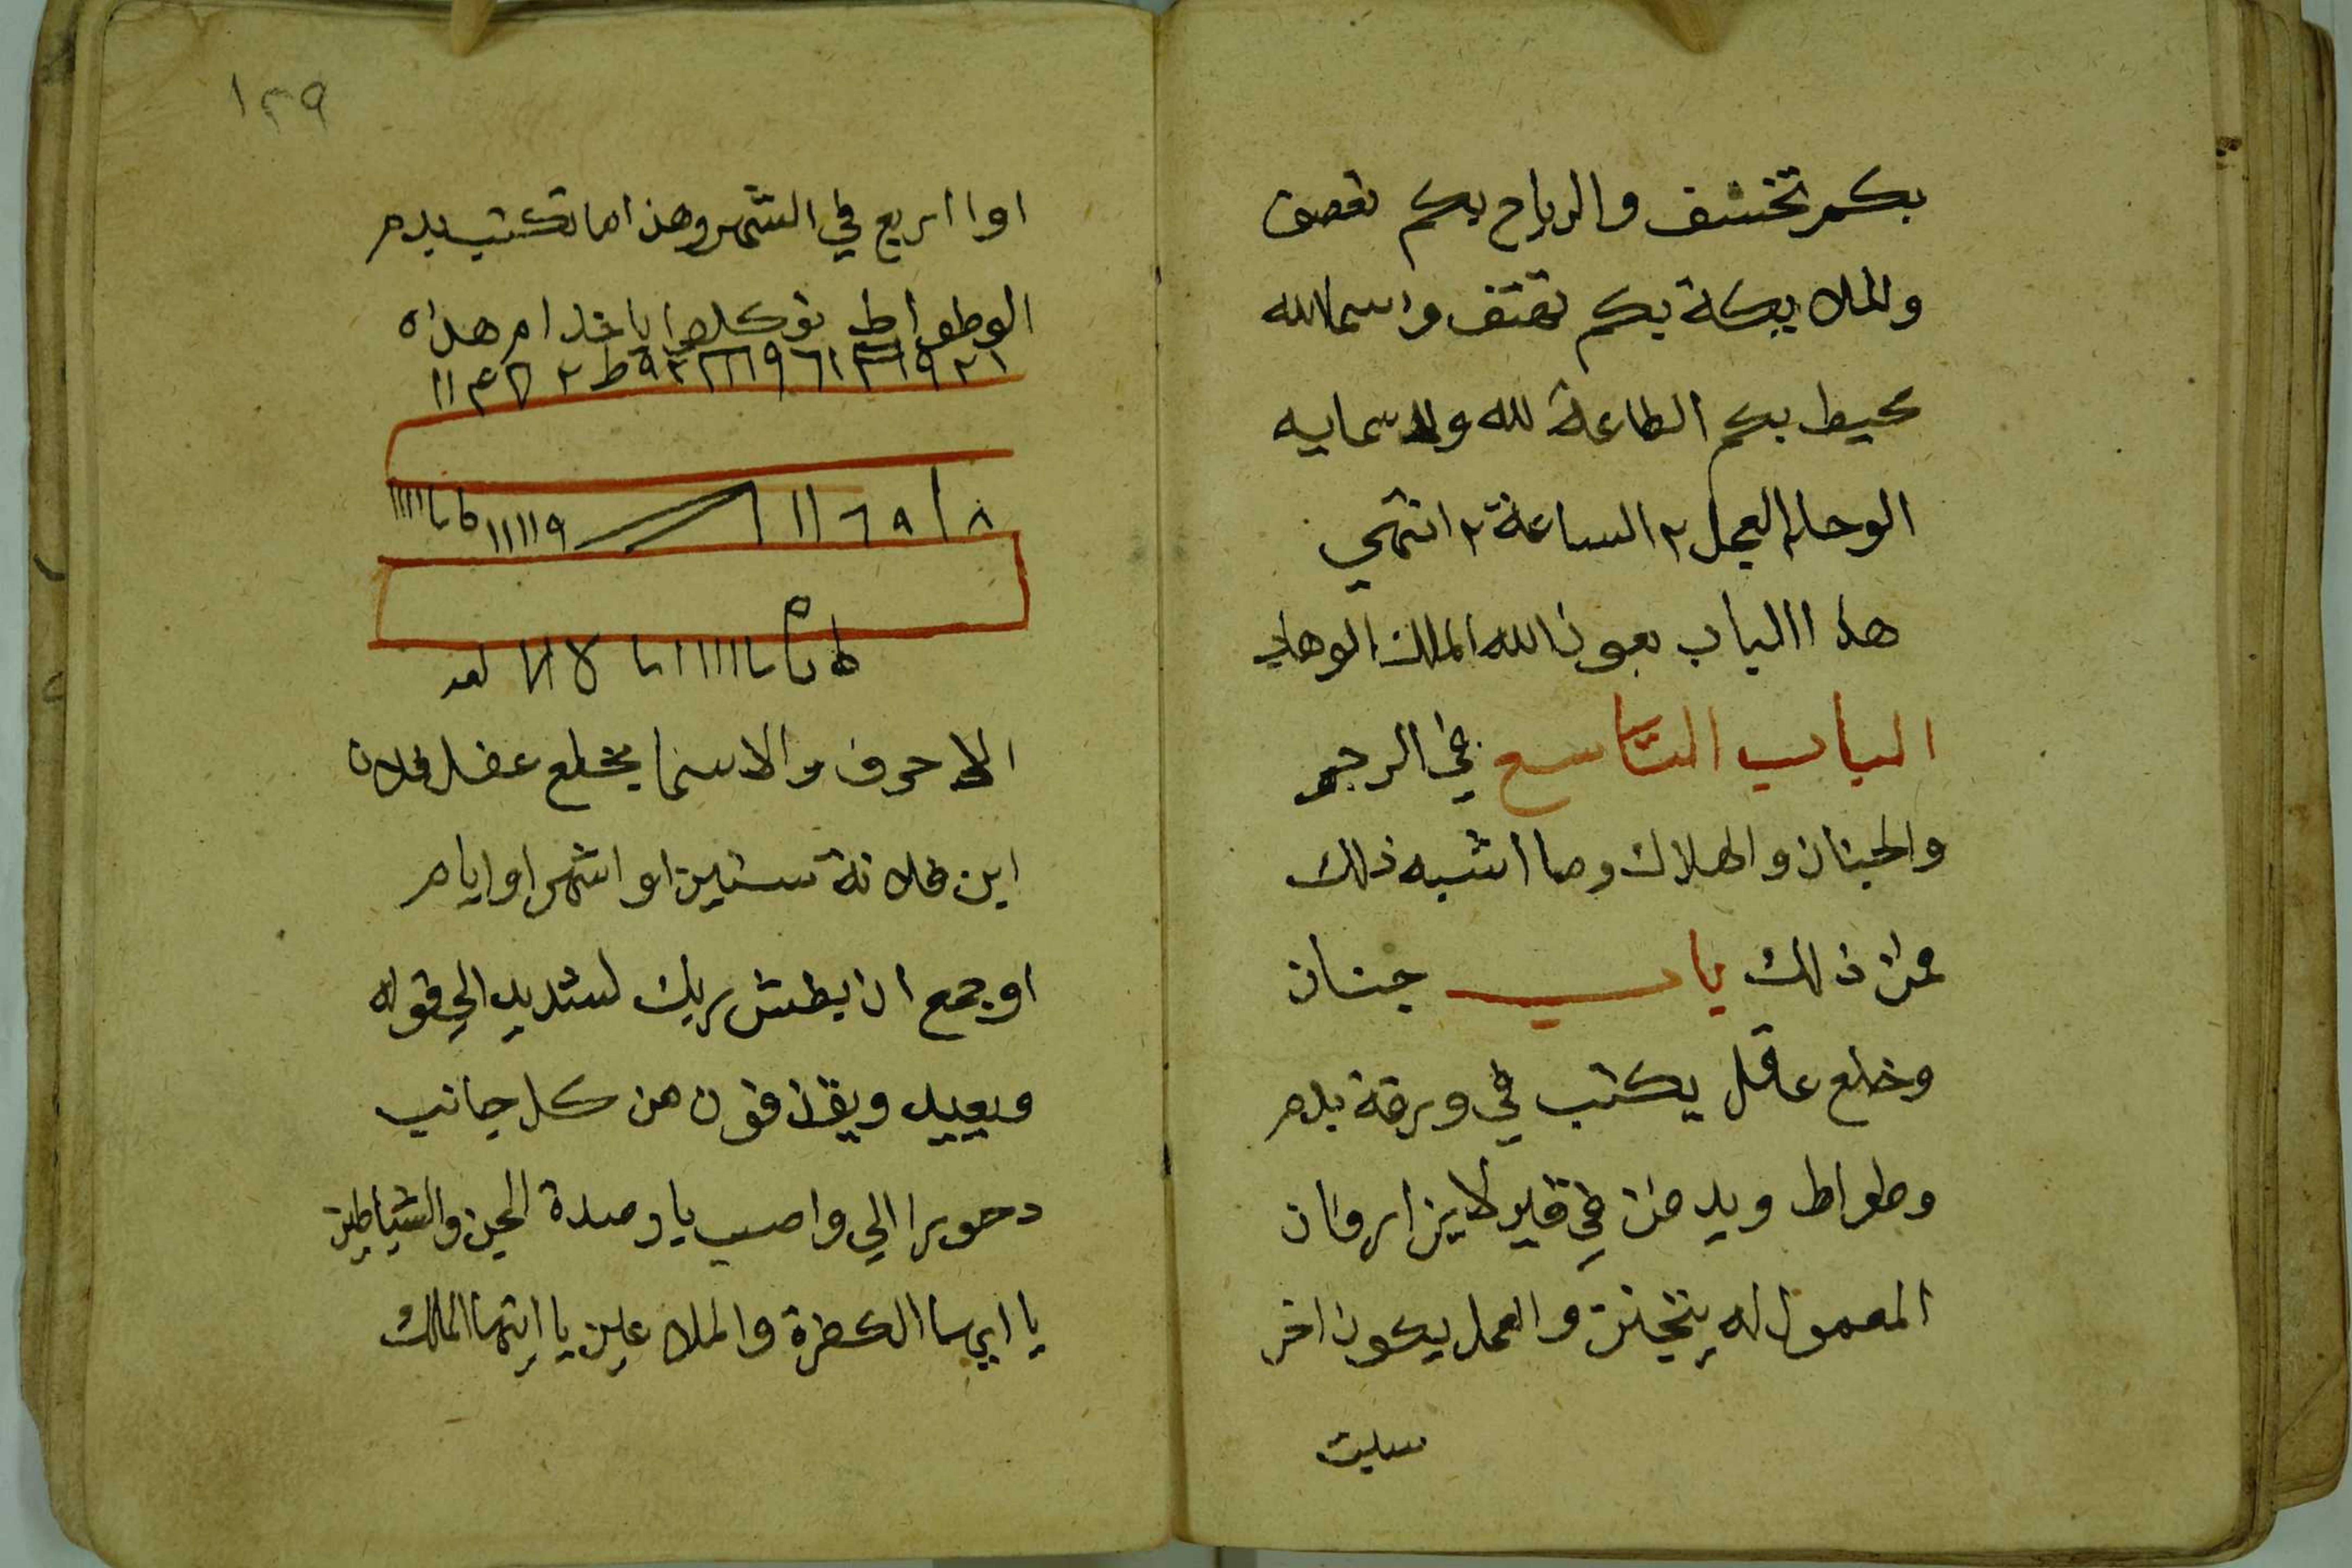 بكم تخسف والرياح بكم تعصف
والملايكة بكم تهتف واسما الله
محيط بكم الطاعة لله ولاسمايه
الوحا ٢ العجل ٢ الساعة ٢ انتهي
هذا الباب بعون الله الملك الوهاب
الباب التاسع في الرجم
والجنان والهلاك وما اشبه ذلك
فمن ذلك باب جنان
وخلع عاقل يكتب في ورقة بدم
وطواط ويدفن في قبر لا يزار فان
المعمول له يتجنن والعمل يكون اخر
سبت
١٢٩
او اربع في الشهر وهذا ما تكتب بدم
الوطواط توكلوا يا خدام هذه
بعد
الاحرف والاسما بخلع عقل فلان
ابن فلانة سنين او اشهر او ايام
او جمع ان بطش ربك لشديد الي قوله
ويعيد ويقذفون من كل جانب
دحورا الي واصب يا رصدة الجن والشياطين
يا ايها الكفرة والملاعين يا ايتها الملك